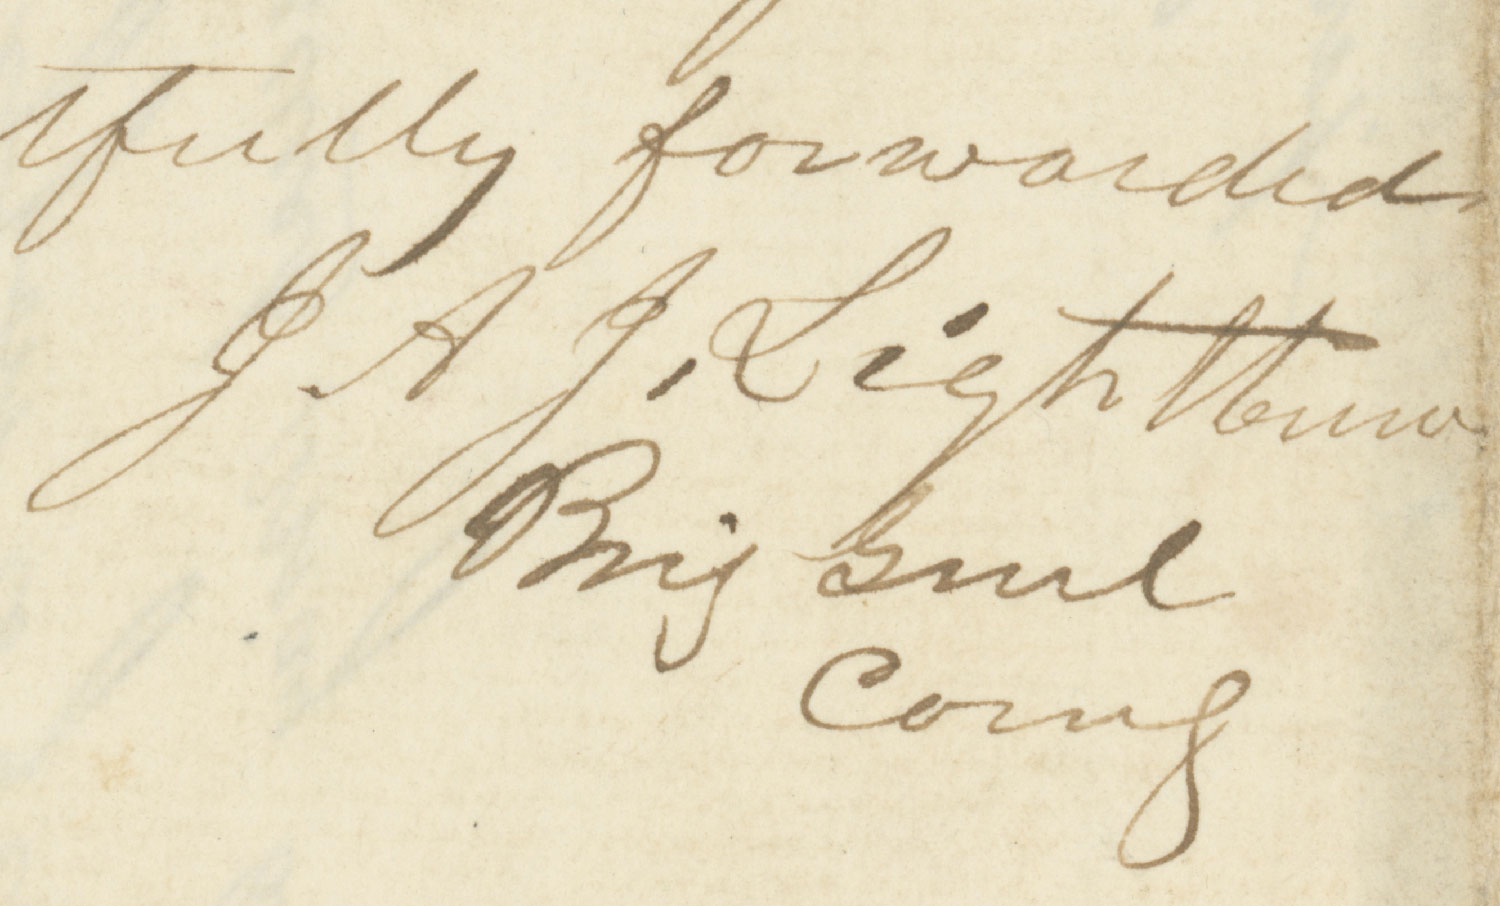 tfully forwarded
J. A J. Lightburn
Brig Genl
Comg